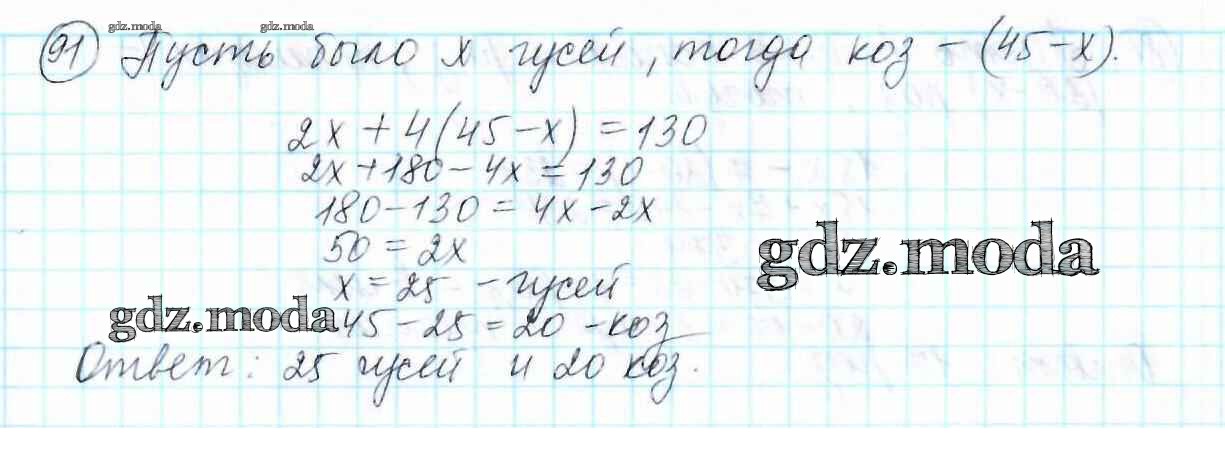 gdz.moda gdz.moda
91 Пусть было х гусей, тогда коз – (45-х).
2х + 4(45-х) = 130
2х+180-4х=130
180-130=4х-2х
50=2х
х=25 - гусей
gdz.moda
gdz.moda 45-25=20-коз
Ответ: 25 гусей и 20 коз.